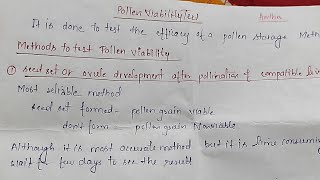 Pollen Viability Test
It is done to test the efficacy of a pollen storage Meth
Methods to test Pollen viability
① seed set or ovule development after pollination of compatible
Most reliable method
seed set formed - pollen grain viable
don't form - pollen grain Nonviable
Although it is most accurate method but it is time consumin
wait for few days to see the result